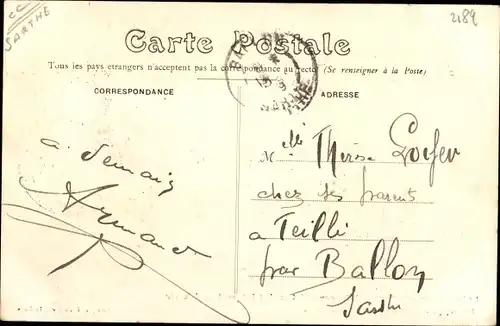 CC
SARTHE
2189
Carte Postale
Tous les pays étrangers n'acceptent pas la correspondance au recto (Se renseigner à la Poste)
CORRESPONDANCE
ADRESSE
a demain
Armand
Mlle Thérèse
chez ses parents
a Teillé
par Ballon
Sarthe